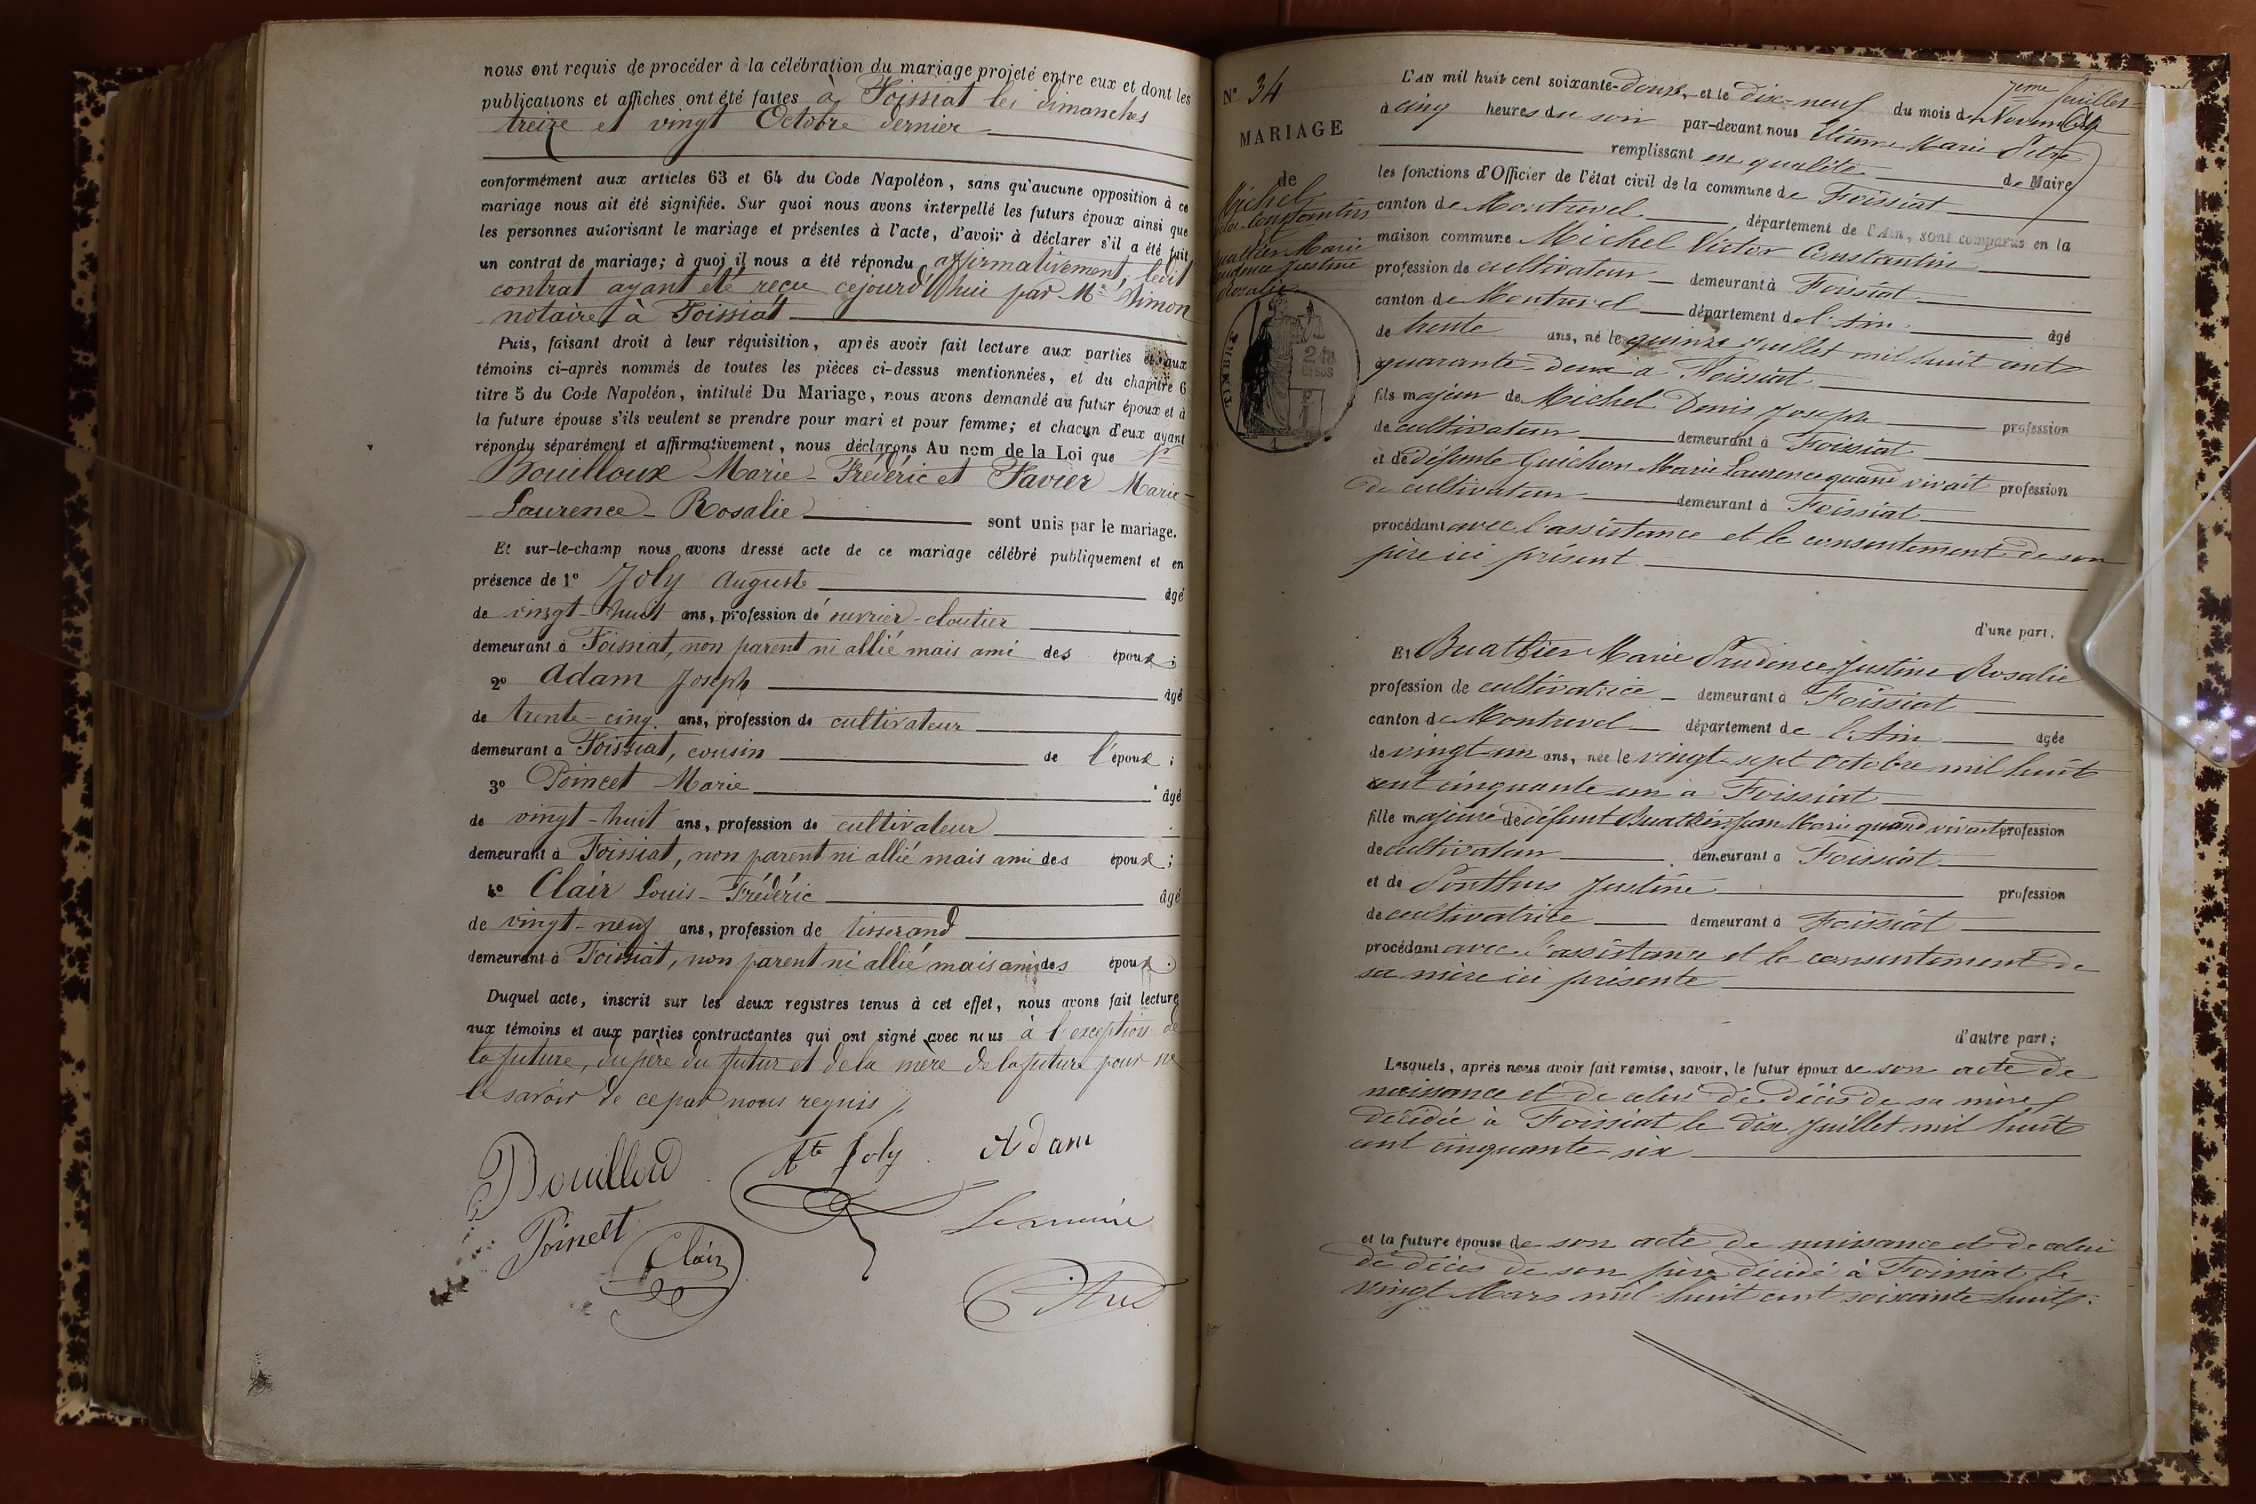 nous ont requis de procéder à la célébration du mariage projeté entre eux et dont les
publications et affiches ont été faites à Foissiat les dimanches
treize et vingt Octobre dernier
conformément aux articles 63 et 64 du Code Napoléon, sans qu'aucune opposition à ce
mariage nous ait été signifiée. Sur quoi nous avons interpellé les futurs époux ainsi que
les personnes autorisant le mariage et présentes à l'acte, d'avoir à déclarer s'il a été fait
un contrat de mariage; à quoi il nous a été répondu affirmativement, ledit
contrat ayant été reçu cejourd'hui par Me Simon
notaire à Foissiat
Puis, faisant droit à leur réquisition, après avoir fait lecture aux parties et aux
témoins ci-après nommés de toutes les pièces ci-dessus mentionnées, et du chapitre 6
titre 5 du Code Napoléon, intitulé Du Mariage, nous avons demandé au futur époux et à
la future épouse s'ils veulent se prendre pour mari et pour femme; et chacun d'eux ayant
répondu séparément et affirmativement, nous déclarons Au nom de la Loi que
Bouilloux Marie-Frédéric et Favier Marie-
Laurence-Rosalie sont unis par le mariage.
Et sur-le-champ nous avons dressé acte de ce mariage célébré publiquement et en
présence de 1º Joly Auguste âgé
de vingt-huit ans, profession de ouvrier-cloutier
demeurant à Foissiat, non parent ni allié mais ami des époux;
2º Adam Joseph âgé
de trente-cinq ans, profession de cultivateur
demeurant à Foissiat, cousin de l'époux;
3º Poincet Marie âgé
de vingt-huit ans, profession de cultivateur
demeurant à Foissiat, non parent ni allié mais ami des époux;
4º Clair Louis-Frédéric âgé
de vingt-neuf ans, profession de tisserand
demeurant à Foissiat, non parent ni allié mais ami des époux.
Duquel acte, inscrit sur les deux registres tenus à cet effet, nous avons fait lecture
aux témoins et aux parties contractantes qui ont signé avec nous à l'exception de
la future, du père du futur et de la mère de la future pour ne
le savoir de ce par nous requis
Bouilloud
Ate Joly
Adam
Poincet
Clair
Le maire
Pitre
7eme feuillet
Nº 34
MARIAGE
de
Michel
Victor Constantin
Buathier Marie
Prudence Justine
Rosalie
TIMBRE
L'AN mil huit cent soixante-douze, et le dix-neuf du mois de Novembre
à cinq heures du soir par-devant nous Etienne Marie Pitre
remplissant en qualité de Maire
les fonctions d'Officier de l'état civil de la commune de Foissiat
canton de Montrevel département de l'Ain, sont comparus en la
maison commune Michel Victor Constantin
profession de cultivateur demeurant à Foissiat
canton de Montrevel département de l'Ain âgé
de trente ans, né le quinze Juillet mil huit cent
quarante-deux à Foissiat
fils majeur de Michel Denis Joseph profession
de cultivateur demeurant à Foissiat
et de défunte Guichon Marie Laurence quand vivait profession
de cultivateur demeurant à Foissiat
procédant avec l'assistance et le consentement de son
père ici présent
d'une part;
Et Buathier Marie Prudence Justine Rosalie
profession de cultivatrice demeurant à Foissiat
canton de Montrevel département de l'Ain âgée
de vingt-un ans, née le vingt-sept Octobre mil huit
cent cinquante un à Foissiat
fille majeure de défunt Buathier Jean Marie quand vivait profession
de cultivateur demeurant à Foissiat
et de Ponthus Justine profession
de cultivatrice demeurant à Foissiat
procédant avec l'assistance et le consentement de
sa mère ici présente
d'autre part;
Lesquels, après nous avoir fait remise, savoir, le futur époux de son acte de
naissance et de celui de décès de sa mère
décédée à Foissiat le dix Juillet mil huit
cent cinquante-six
et la future épouse de son acte de naissance et de celui
de décès de son père décédé à Foissiat le
vingt Mars mil huit cent soixante huit.